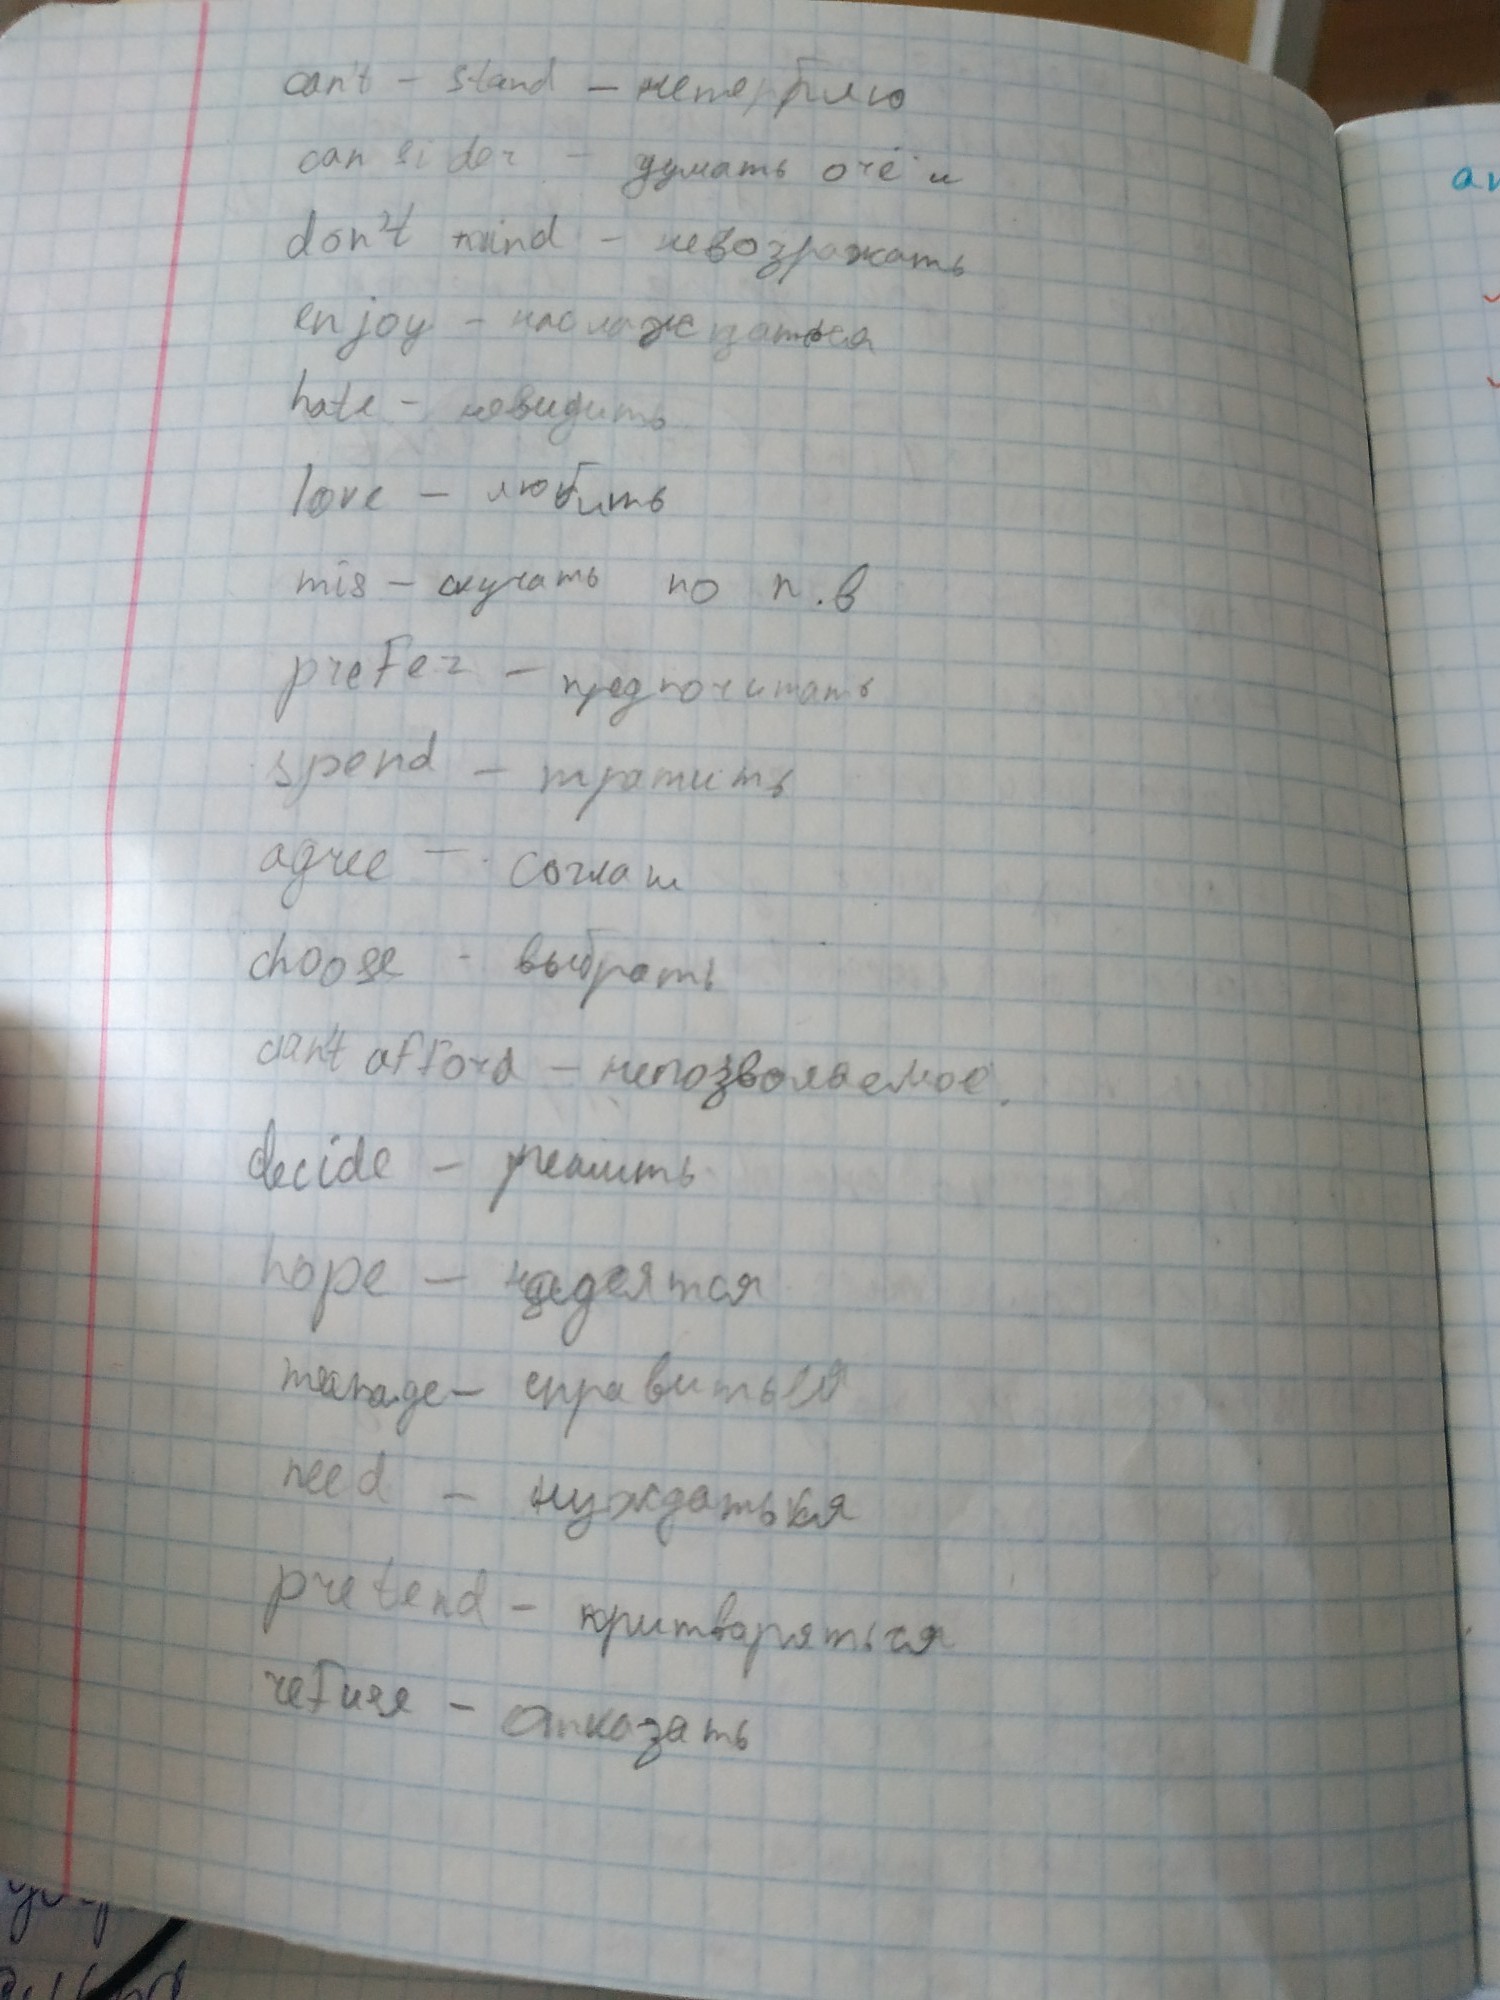 can't - stand - нетерблю
can sider - думать о чём
don't mind - невозражать
enjoy - наслаждаться
hate - невидить
love - любить
mis - скучать по п.в
prefer - предпочитать
spend - тратить
agree - соглаш
choose - выбрать
can't afford - непозволяемое.
decide - решить
hope - надеятся
manage - справиться
need - нуждаться
pretend - притворяться
refuse - отказать